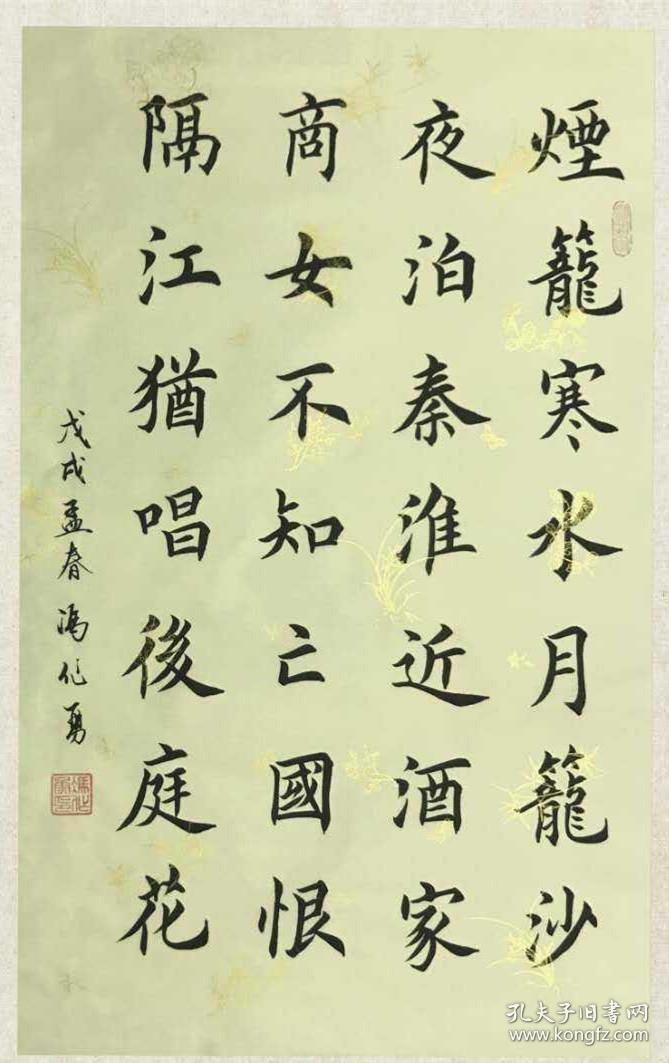 煙籠寒水月籠沙
夜泊秦淮近酒家
商女不知亡國恨
隔江猶唱後庭花
戊戌孟春馮作勇
孔夫子旧書网
www.kongfz.com